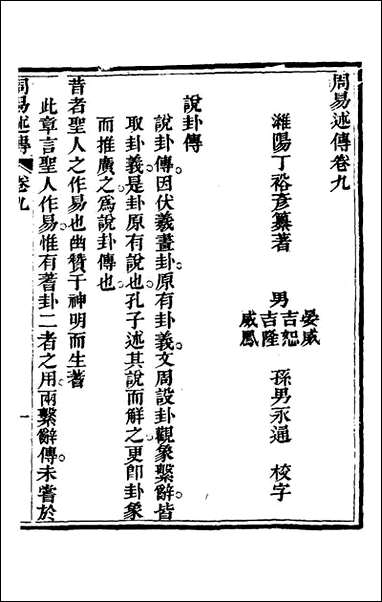 周易述傳卷九
濰陽丁裕彥纂著　男
晏威
吉恕
吉隆
威鳳
孫男永通　校字
說卦傳
說卦傳因伏羲畫卦原有卦義文周設卦觀象繫辭皆
取卦義是卦原有說也孔子述其說而解之更卽卦象
而推廣之爲說卦傳也
昔者聖人之作易也幽贊于神明而生蓍
此章言聖人作易惟有蓍卦二者之用兩繫辭傳未嘗於
周易述傳　卷九　一